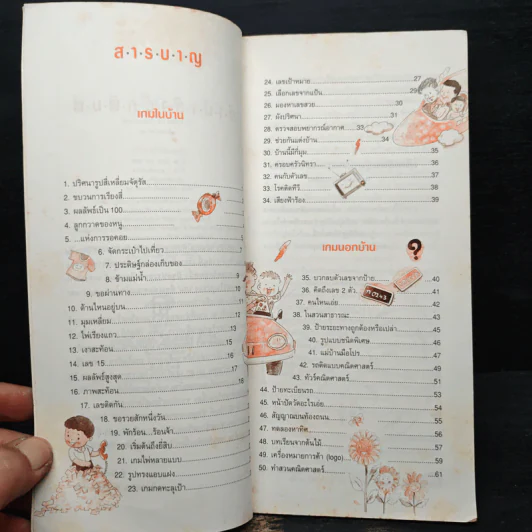 ส·า·ร·บ·า·ญ
เกมในบ้าน
1. ปริศนารูปสี่เหลี่ยมจัตุรัส
2. ขบวนการเรียงสี่
3. ผลลัพธ์เป็น 100
4. ลูกกวาดของหนู
5. ...แห่งการรอคอย
6. จัดกระเป๋าไปเที่ยว
7. ประดิษฐ์กล่องเก็บของ
8. ข้ามแม่น้ำ
9. ขอผ่านทาง
10. ด้านไหนอยู่บน
11. มุมเหลี่ยม
12. ไพ่เรียงแถว
13. เงาสะท้อน
14. เลข 15
15. ผลลัพธ์สูงสุด
16. ภาพสะท้อน
17. เลขติดกัน
18. ขอรวยสักหนึ่งวัน
19. พักร้อน...ร้อนจ้า
20. เริ่มต้นถึงยี่สิบ
21. เกมไพ่หลายแบบ
22. รูปทรงแอบแฝง
23. เกมกดทะลุเป้า
24. เลขเป้าหมาย 27
25. เลือกเลขจากแป้น 29
26. มองหาเลขสวย 30
27. ผังปริศนา 31
28. ตรวจสอบพยากรณ์อากาศ 33
29. ช่วยกันแต่งบ้าน 34
30. บ้านนี้มีกี่มุม 35
31. ครอบครัวนิทรา 36
32. คนกับตัวเลข 37
33. โรคติดทีวี 38
34. เสียงฟ้าร้อง 39
เกมนอกบ้าน
35. บวกลบตัวเลขจากป้าย 40
36. คิดถึงเลข 2 ตัว 41
37. คนไหนเอ่ย 42
38. ในสวนสาธารณะ 43
39. ป้ายระยะทางถูกต้องหรือเปล่า 44
40. รูปแบบชนิดพิเศษ 46
41. แม่บ้านมือโปร 47
42. รถติดแบบคณิตศาสตร์ 50
43. ทัวร์คณิตศาสตร์ 51
44. ป้ายทะเบียนรถ 53
45. หน้าปัดวัดอะไรเอ่ย 54
46. สัญญาณบนท้องถนน 55
47. ทดลองหาทิศ 56
48. บทเรียนจากต้นไม้ 57
49. เครื่องหมายการค้า (logo) 59
50. ทำสวนคณิตศาสตร์ 61